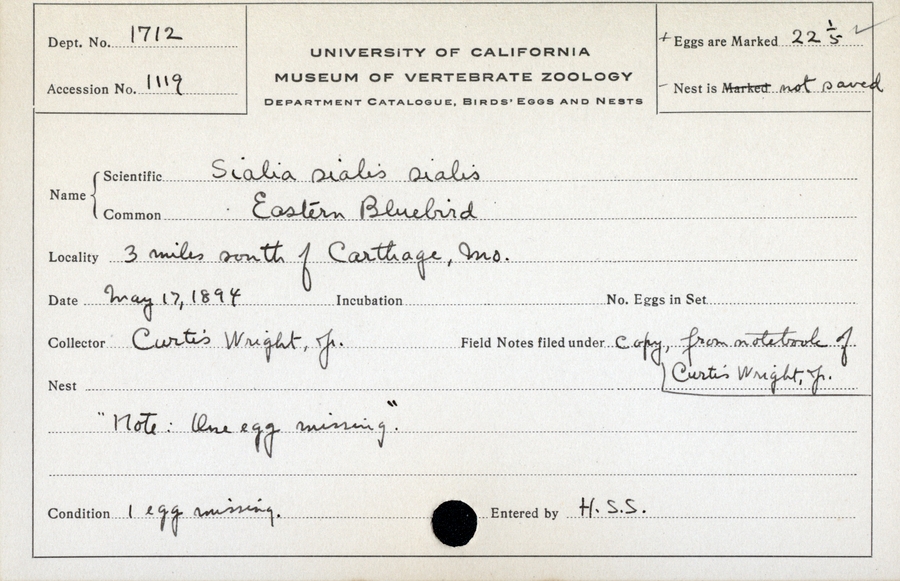 Dept. No. 1712
Accession No. 1119
UNIVERSITY OF CALIFORNIA
MUSEUM OF VERTEBRATE ZOOLOGY
DEPARTMENT CATALOGUE, BIRDS' EGGS AND NESTS
+ Eggs are Marked 22 1/5 ✓
- Nest is Marked not saved
Name { Scientific Sialia sialis sialis
Common Eastern Bluebird
Locality 3 miles south of Carthage, Mo.
Date May 17, 1894 Incubation No. Eggs in Set
Collector Curtis Wright, Jr. Field Notes filed under copy, from notebook of
Curtis Wright, Jr.
Nest
"Note: One egg missing."
Condition 1 egg missing. Entered by H. S. S.